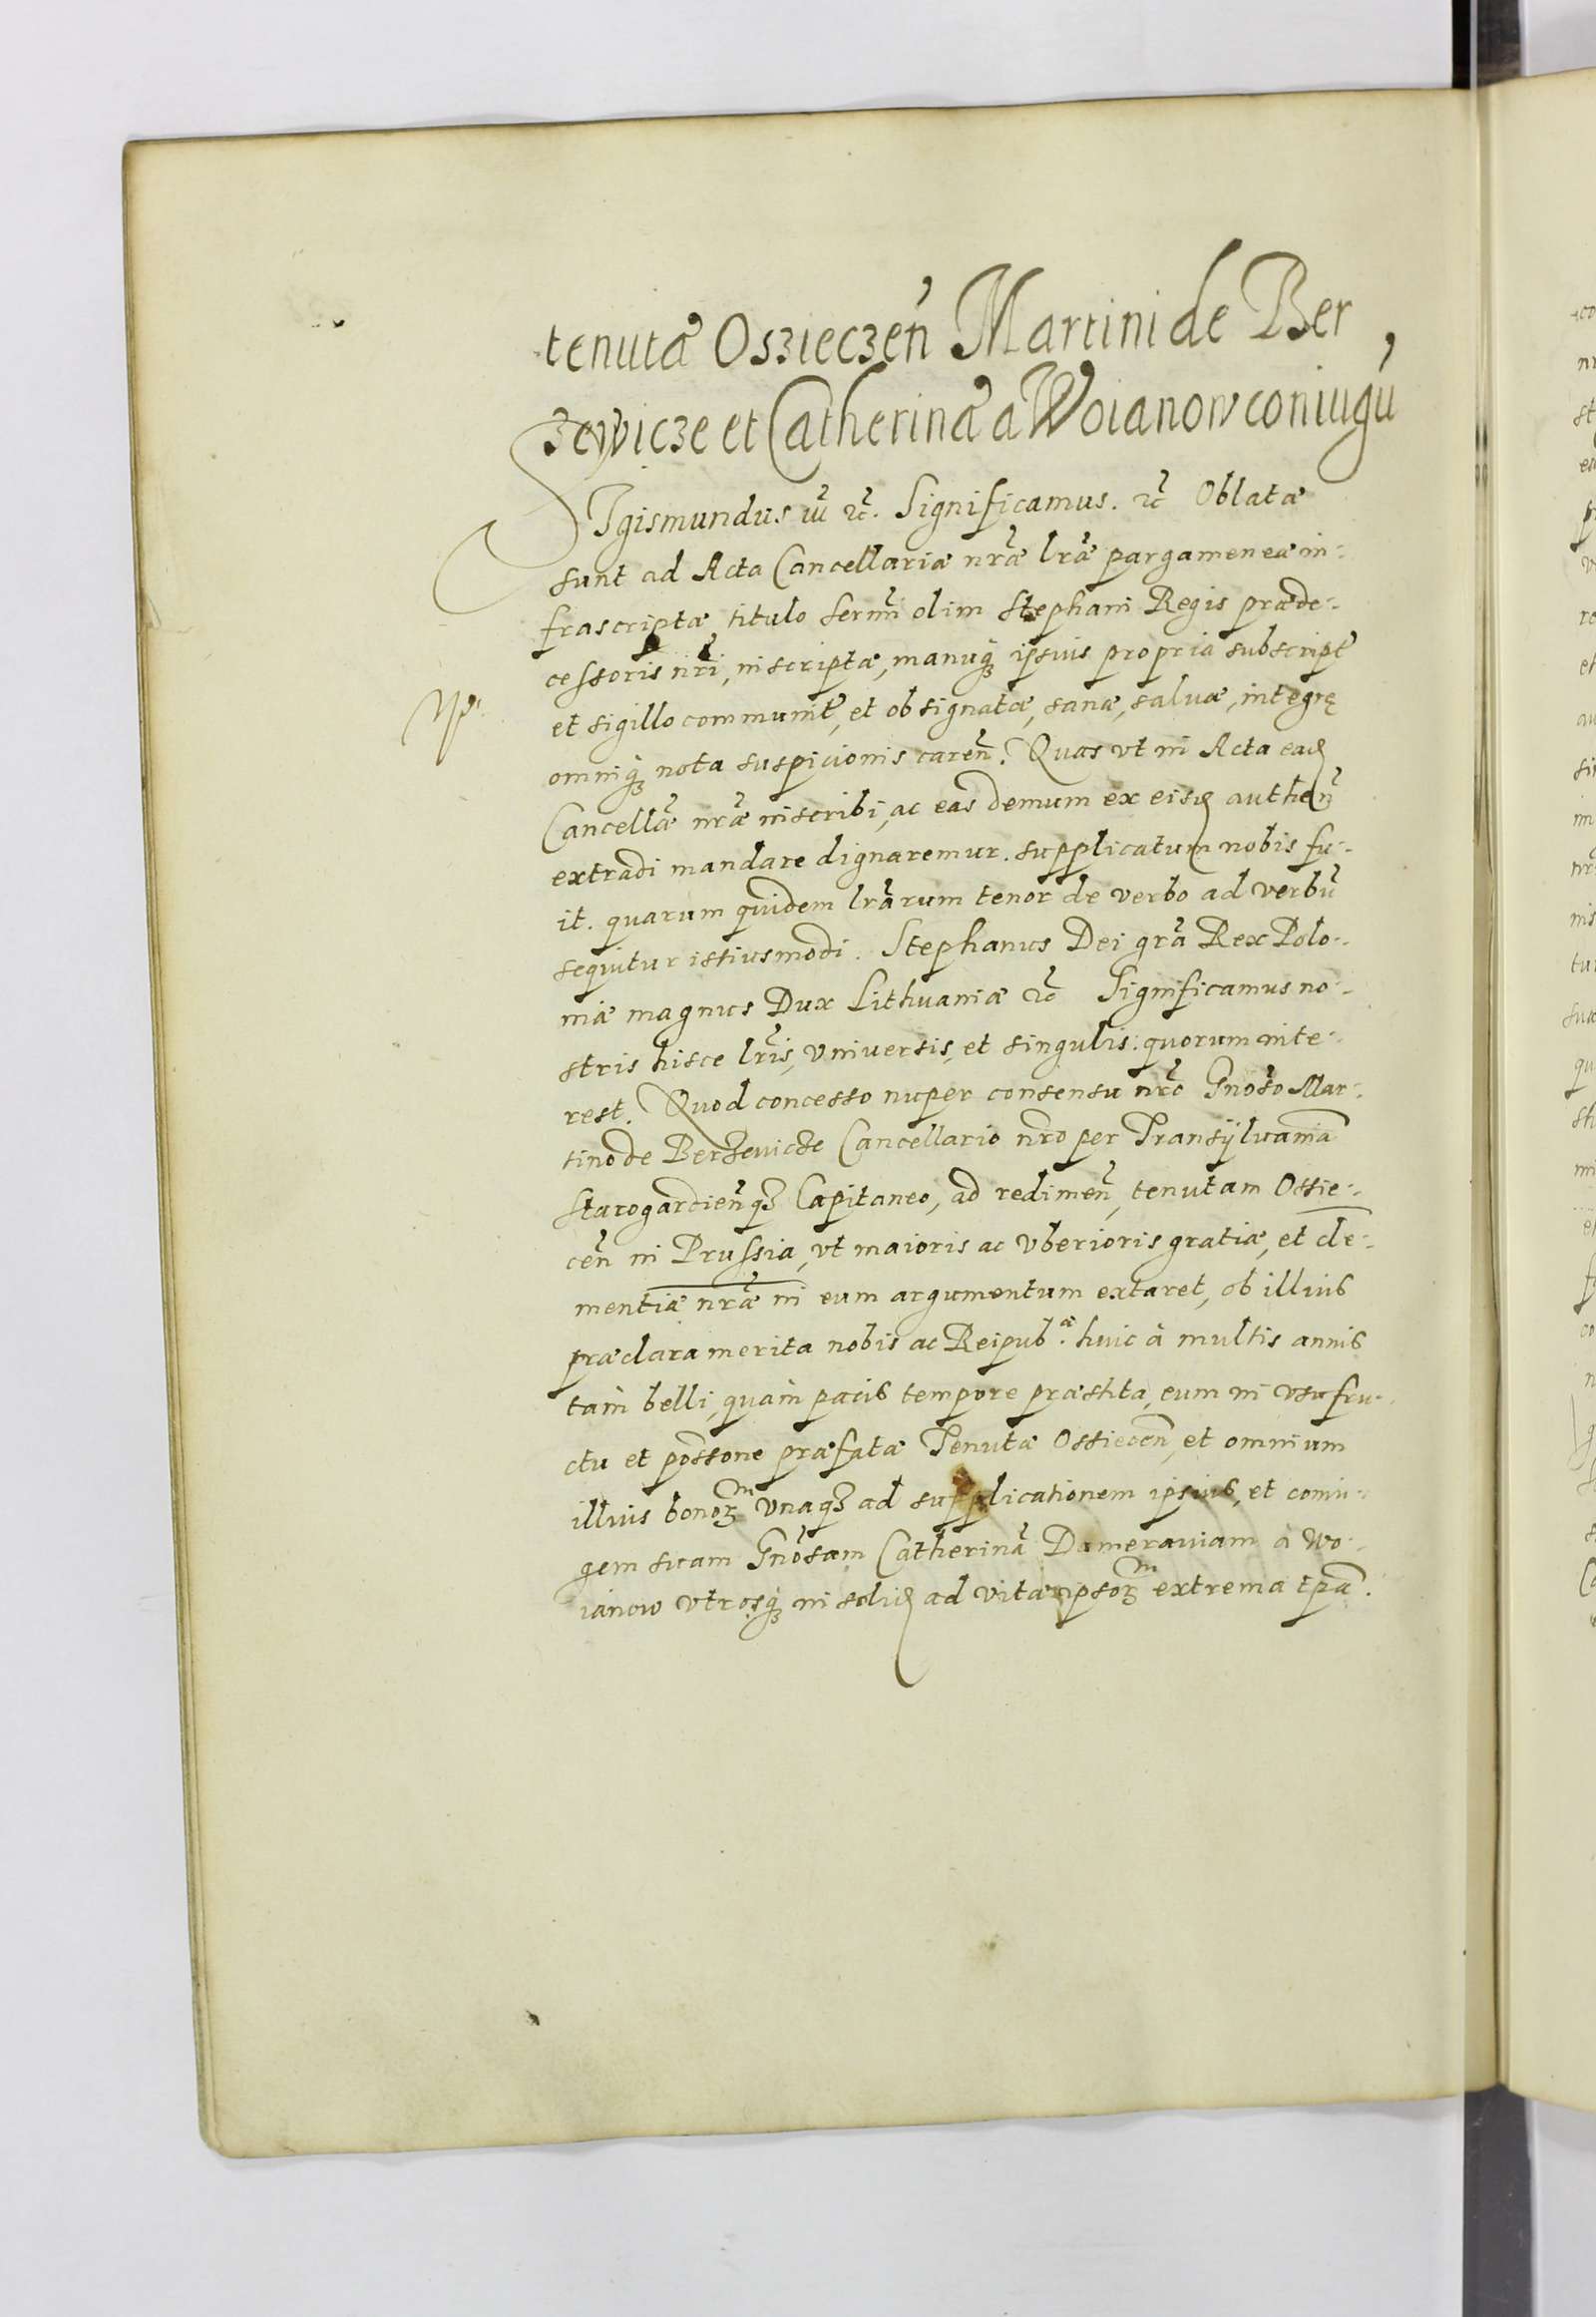 tenutã Oszieczeñ Martini de Ber
zewicze et Catherinã a Woianow coniugũ
Sigismundus iii ꝛc̃. Significamus. ꝛc̃ Oblatæ
sunt ad Acta Cancellariæ nrãe lrãe pargameneæ in-
frascriptæ titulo sermĩ olim Stephani Regis præde-
cessoris nrĩ, inscriptæ, manuq̃ꝫ ipsius propria subscript̃
et sigillo communit̃, et obsignatæ, sanæ, saluæ, integrę
omniq̃ꝫ nota suspicionis careñ. Quas vt in Acta eaꝺ
Cancellãe nrãe inscribi, ac eas demum ex eisꝺ autheñ
extradi mandare dignaremur. supplicatum nobis fu-
it. quarum quidem lrãrum tenor de verbo ad verbũ
sequitur istiusmodi. Stephanus Dei grã Rex Polo-
niæ magnus Dux Lithuaniæ ꝛc̃ Significamus no-
stris hisce lrĩs, vniuersis, et singulis: quorum inte-
rest. Quod concesso nuper consensu nrõ Gnõso Mar-
tino de Berzeuicze Cancellario nrõ per Transÿluaniã
Starogardieñqꝫ Capitaneo, ad redimeñ, tenutam Ossie-
ceñ in Prussia, vt maioris ac vberioris gratiæ, et cle-
mentiæ nrãe in eum argumentum extaret, ob illius
præclara merita nobis ac Reipub.æ huic à multis annis
tam belli, quàm pacis tempore præstita, eum in vsufru-
ctu et põssone præfatæ Tenutæ Ossieceñ, et omnium
illius bonoꝝm vnaqꝫ ad supplicationem ipsius, et coniu-
gem suam Gnõsam Catherinã Dameraviam à Wo-
ianow vtrosq̃ꝫ in soliꝺ ad vitæ ipsoꝝm extrema tp̃a.